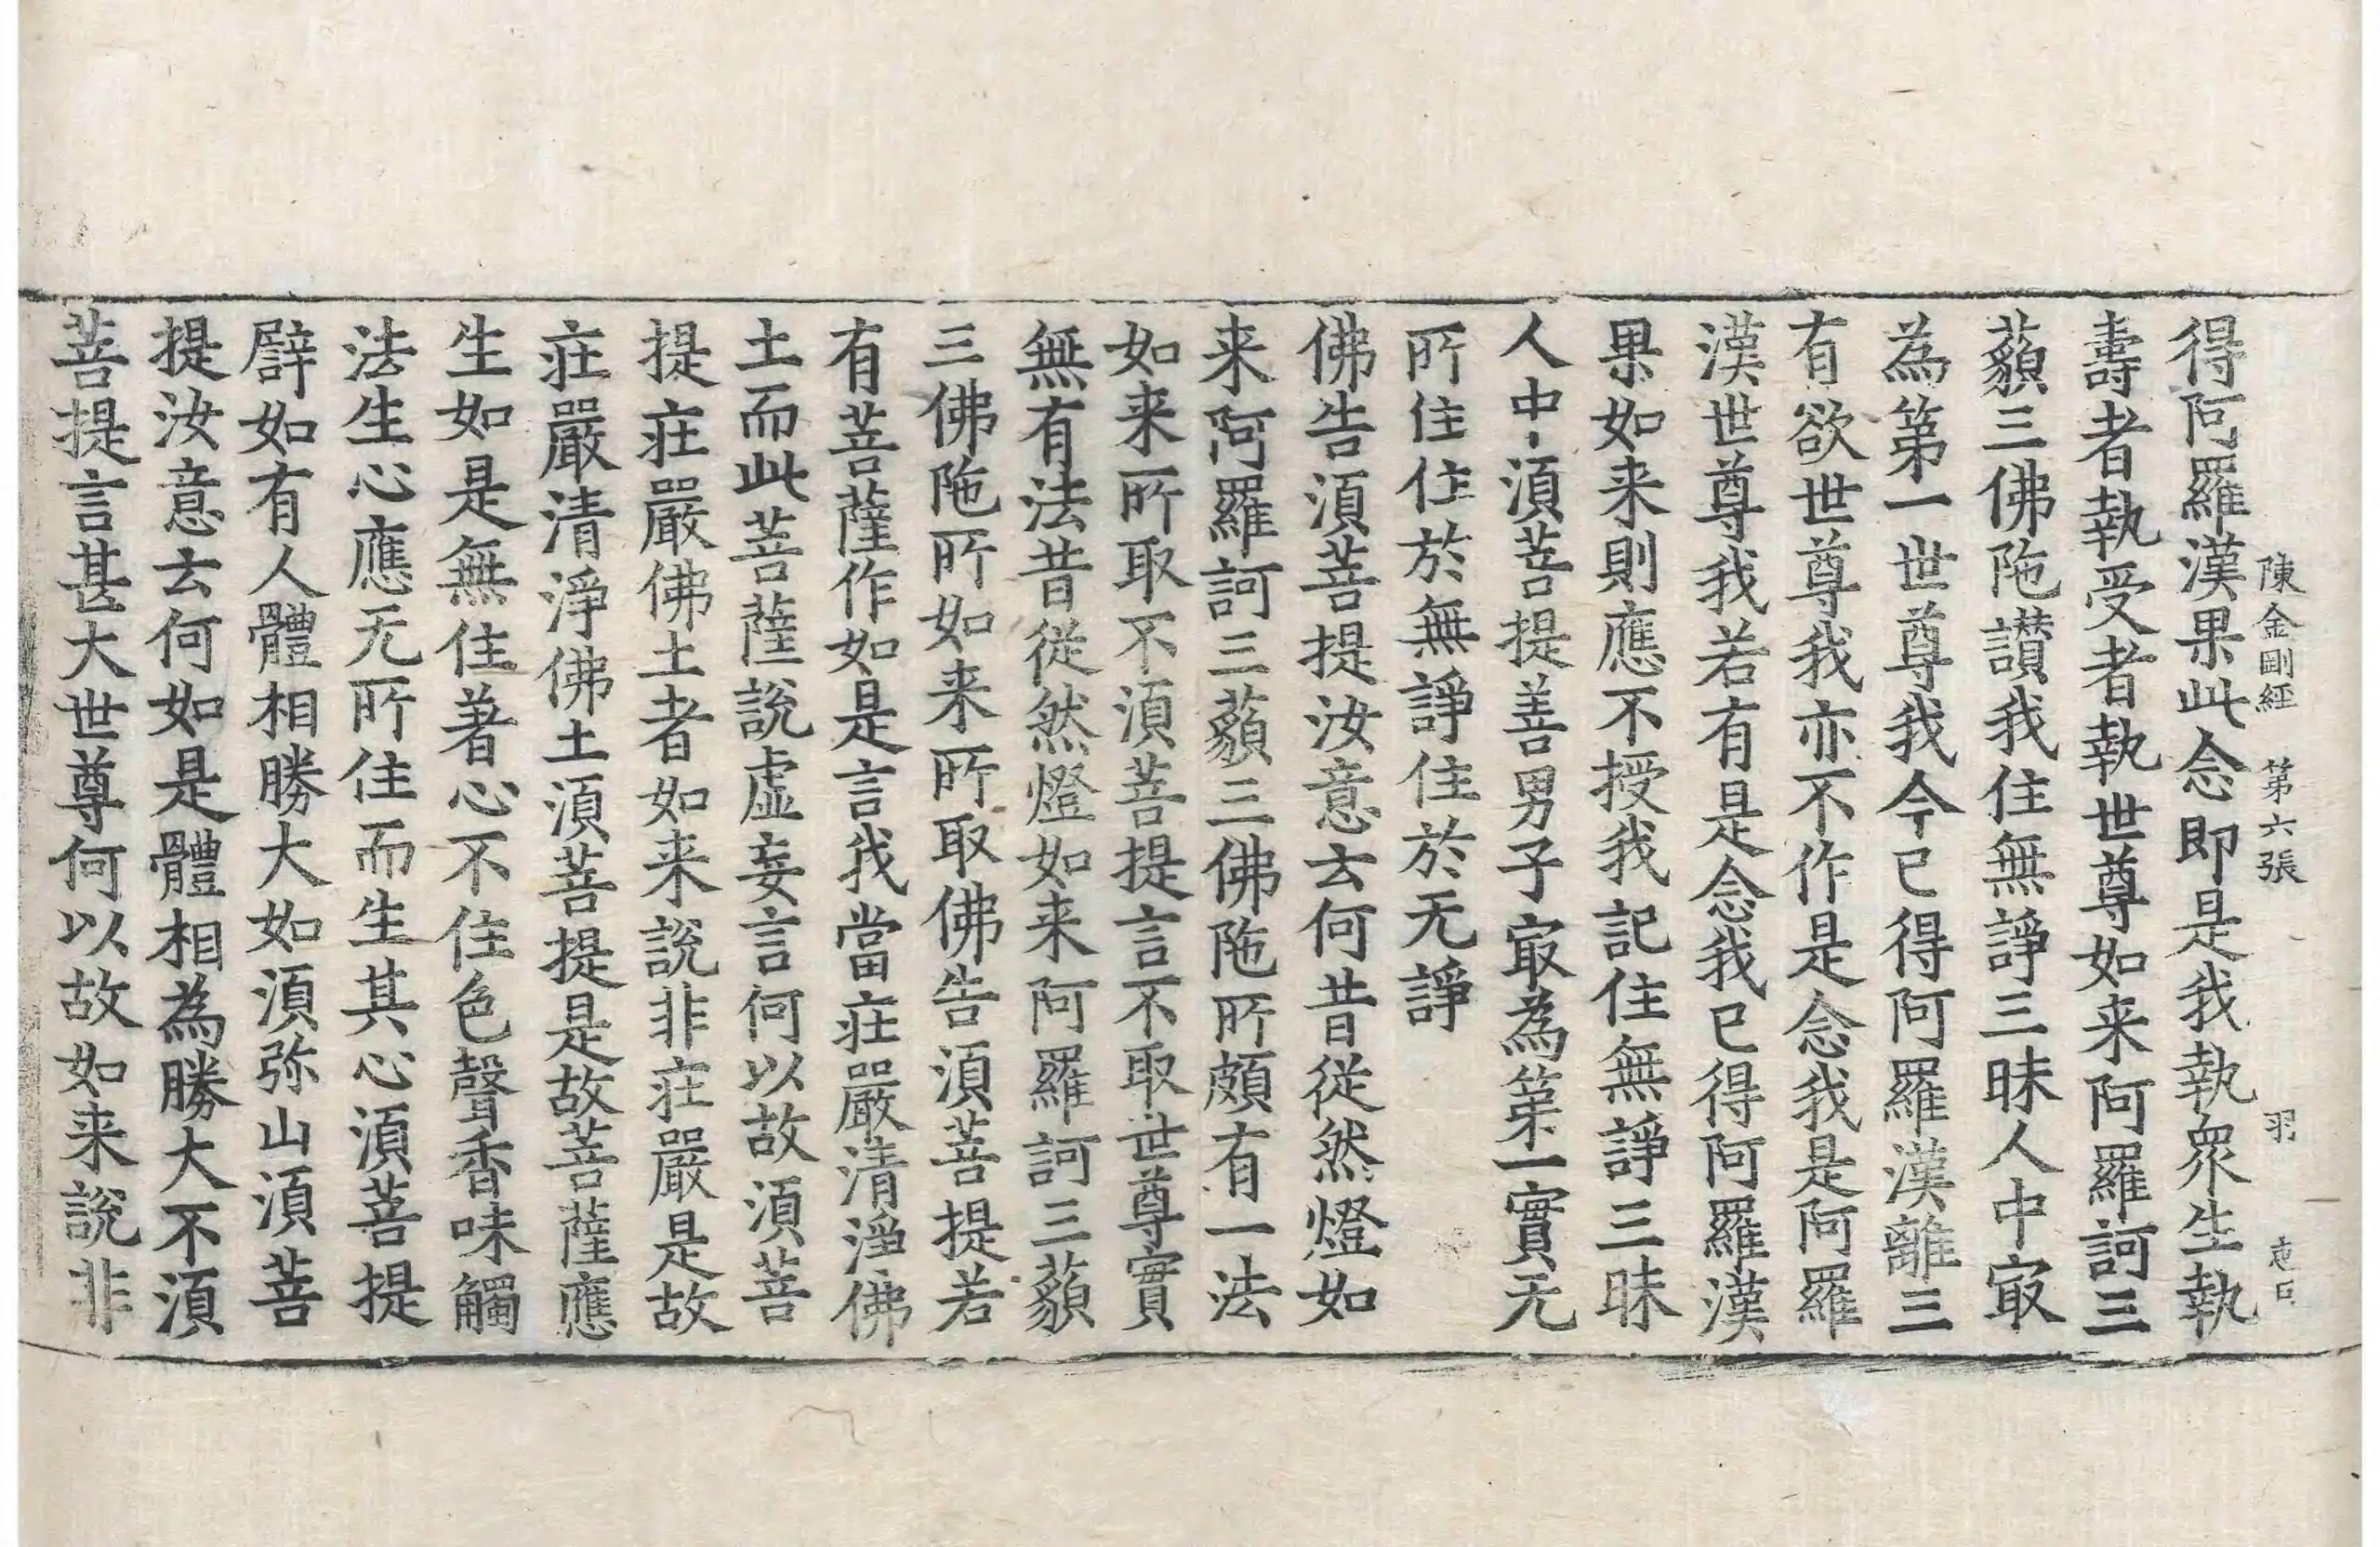 陳金剛經　第六張　羽
得阿羅漢果此念即是我執衆生執
壽者執受者執世尊如来阿羅訶三
藐三佛陁讃我住無諍三昧人中㝡
為第一世尊我今已得阿羅漢離三
有欲世尊我亦不作是念我是阿羅
漢世尊我若有是念我已得阿羅漢
果如来則應不授我記住無諍三昧
人中須菩提善男子㝡為第一實无
所住住於無諍住於无諍
佛告須菩提汝意云何昔從然燈如
来阿羅訶三藐三佛陁所頗有一法
如来所取不須菩提言不取世尊實
無有法昔從然燈如来阿羅訶三藐
三佛陁所如来所取佛告須菩提若
有菩薩作如是言我當莊嚴清淨佛
土而此菩薩說虛妄言何以故須菩
提莊嚴佛土者如来說非莊嚴是故
莊嚴清淨佛土須菩提是故菩薩應
生如是無住著心不住色聲香味觸
法生心應无所住而生其心須菩提
譬如有人體相勝大如須弥山須菩
提汝意云何如是體相為勝大不須
菩提言甚大世尊何以故如来說非